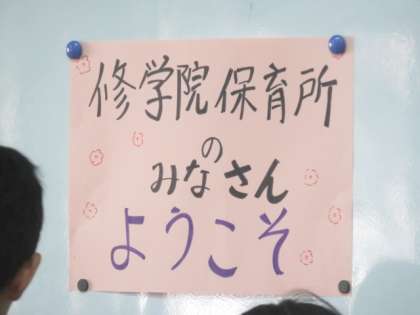 修学院保育所
の
みなさん
ようこそ